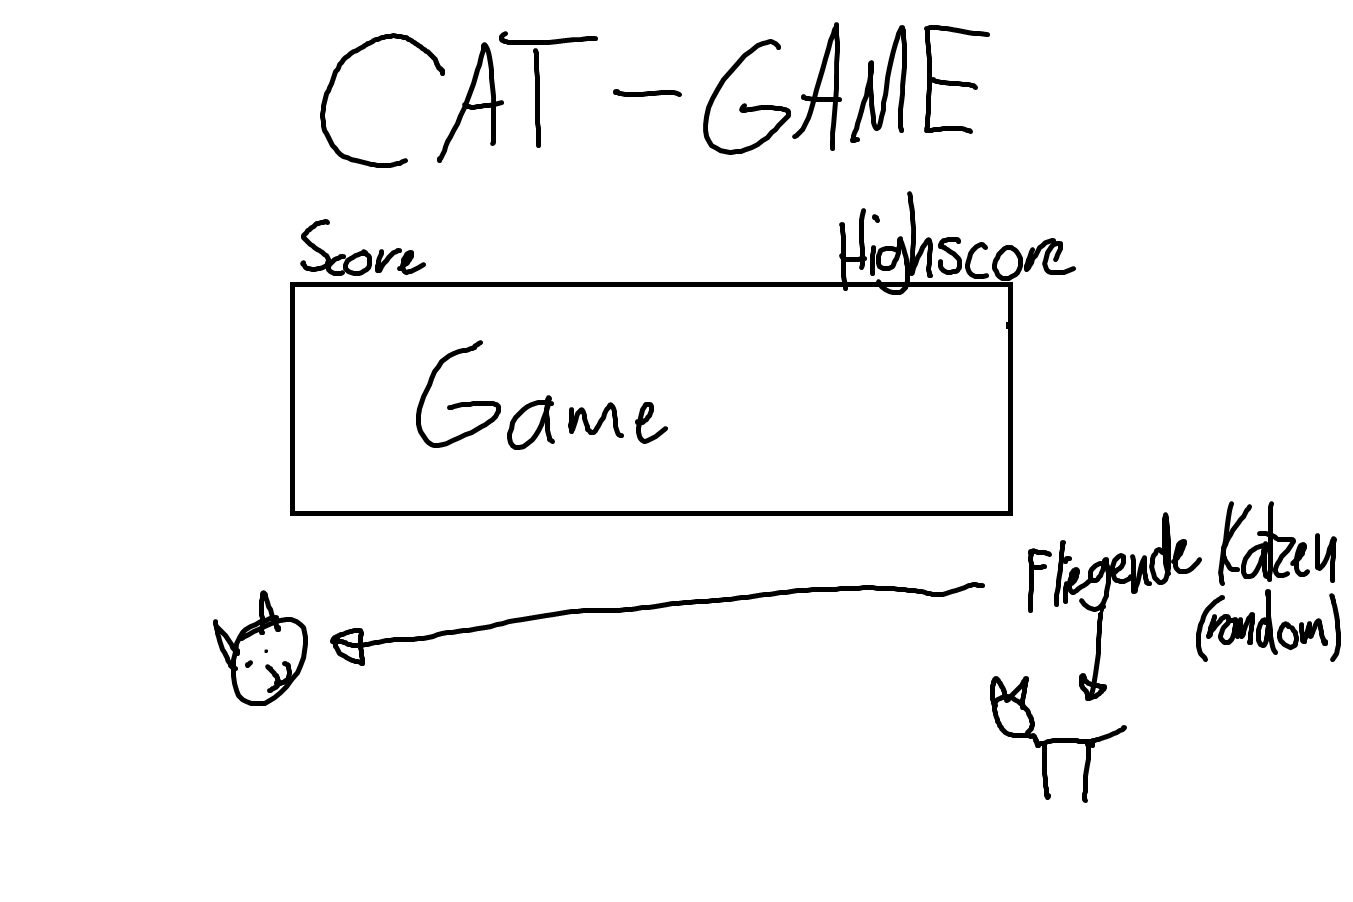 CAT-GAME
Score Highscore
Game
Fliegende Katzen
(random)